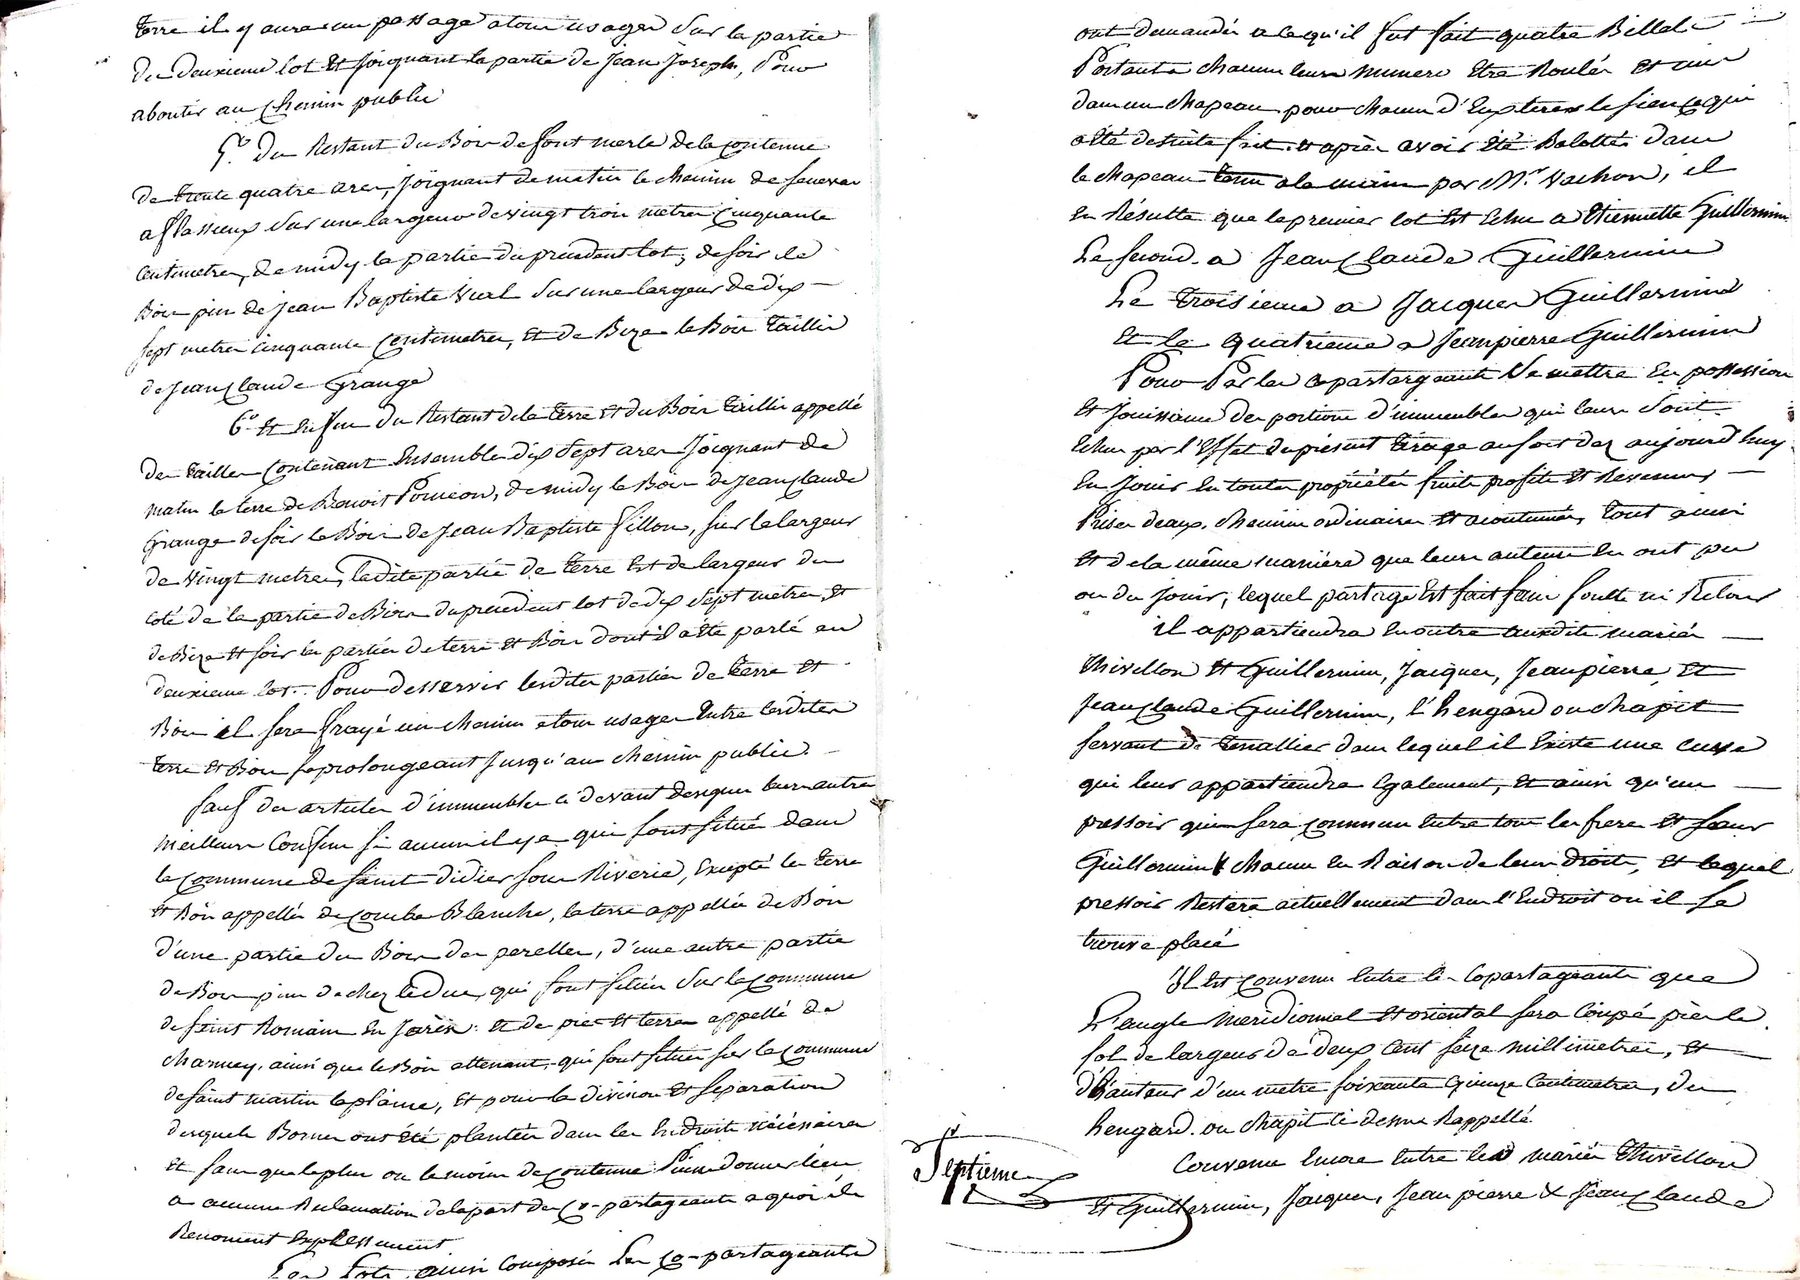 terre il y aura un passage a tous usages sur la partie
du deuxieme lot et joignant la partie de Jean Joseph, Pour
aboutir au Chemin public
5.° du Restant du Bois de font merle de la Contenue
de trente quatre ares, joignant de matin le chemin de
a sur une largeur de vingt trois metres cinquante
centimetres, de midy la partie du precedent lot, de soir le
Bois pin de Jean Baptiste Vial sur une largeur de dix
sept metres cinquante Centimetres, et de Bize le Bois taillis
de Jean Claude Grange
6.° et Enfin du Restant de la terre et du Bois taillis appellé
de contenant Ensemble dix sept ares Joignant de
matin la terre de Benoit Poncon, de midy le Bois de Jean Claude
Grange de soir le Bois de Jean Baptiste Fillon, sur la largeur
de vingt metres, ladite partie de terre Est de largeur du
coté de la partie de Bois du precedent lot de dix sept metres, et
de Bize et soir les parties de terre et Bois dont il a été parlé au
deuxieme lot. Pour desservir lesdites parties de terre et
Bois il sera frayé un chemin a tous usages Entre lesdites
terre et Bois se prolongeant Jusqu'au chemin public.
sauf des articles d'immeubles ci devant designés leurs autres
meilleurs Confins si aucun il y a qui sont situés dans
la Commune de Saint Didier sous Riverie, Excepté les terre
et Bois appellés de Combe Blanche, la terre appellée de Bois
d'une partie du Bois des perelles, d'une autre partie
de Bois pin de chez le Duc, qui sont situés sur la Commune
de Saint Romain En Jarèz. et de pie et terre appellé de
Charney, ainsi que le Bois attenant, qui sont situés sur la Commune
de Saint martin la plaine, et pour la division et separation
desquels Bornes ont été plantées dans les Endroits nécéssaires
et sans que le plus ou le moins de Contenue Puisse donner lieu
a aucune Reclamation de la part des Co-partageants a quoi ils
Renoncent Expressement
Les Lots ainsi composés Les Co-partageants
ont demandés a ce qu'il fut fait quatre Billets
Portants chacun leurs numero Etre Roulés et mis
dans un chapeau pour chacun d'Eux tirer le sien ce qui
a été de suite fait. et après avoir été Balottés dans
le chapeau tenu a la main par M.r Vachon, il
En Résulte que le premier lot Est Echu a Etiennette Guillermin
Le second a Jean Claude Guillermin
Le troisieme a Jacques Guillermin
Et le quatrieme a Jean pierre Guillermin
Pour Par les Copartargeants Se mettre En possession
et Jouissance des portions d'immeubles qui leurs sont
Echus par l'Effet du présent tirage au sort dez aujourd'huy
En Jouir En toutes propriétés fruits profits et Revenus
Prises d'eaux, chemins ordinaires et acoutumés, tout ainsi
et de la même maniere que leurs auteurs En ont pu
ou du Jouir, lequel partage Est fait sans soulte ni Retour
il appartiendra En outre auxdits mariés
Thivillon et Guillermin, Jacques, Jean pierre et
Jean Claude Guillermin, l'hengard ou chapit
servant de tenallier dans lequel il Existe une cuve
qui leur appartiendra Egalement, et ainsi qu'un
pressoir qui sera Commun Entre tous les frere et sœur
Guillermin chacun En Raison de leurs droits, et lequel
pressoir Restera actuellement dans l'Endroit ou il se
trouve placé
Il Est Convenu Entre les Copartageants que
L'angle méridionnal et oriental sera Coupé près le
sol de largeur de deux cent seize millimetres, et
d'hauteur d'un metre soixante quinze Centimetres, du
hengard. ou chapit ci dessus Rappellé.
Convenu Encore Entre les mariés Thivillon
Septieme
et Guillermin, Jacques, Jean pierre & Jean Claude